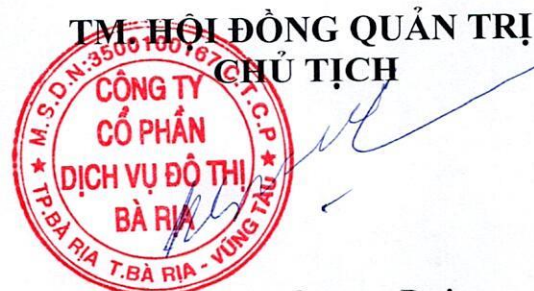 TM. HỘI ĐỒNG QUẢN TRỊ
CHỦ TỊCH
M.S.D.N:3500100167-C.T.C.P
CÔNG TY
CỔ PHẦN
DỊCH VỤ ĐÔ THỊ
BÀ RỊA
TP.BÀ RỊA T.BÀ RỊA - VŨNG TÀU